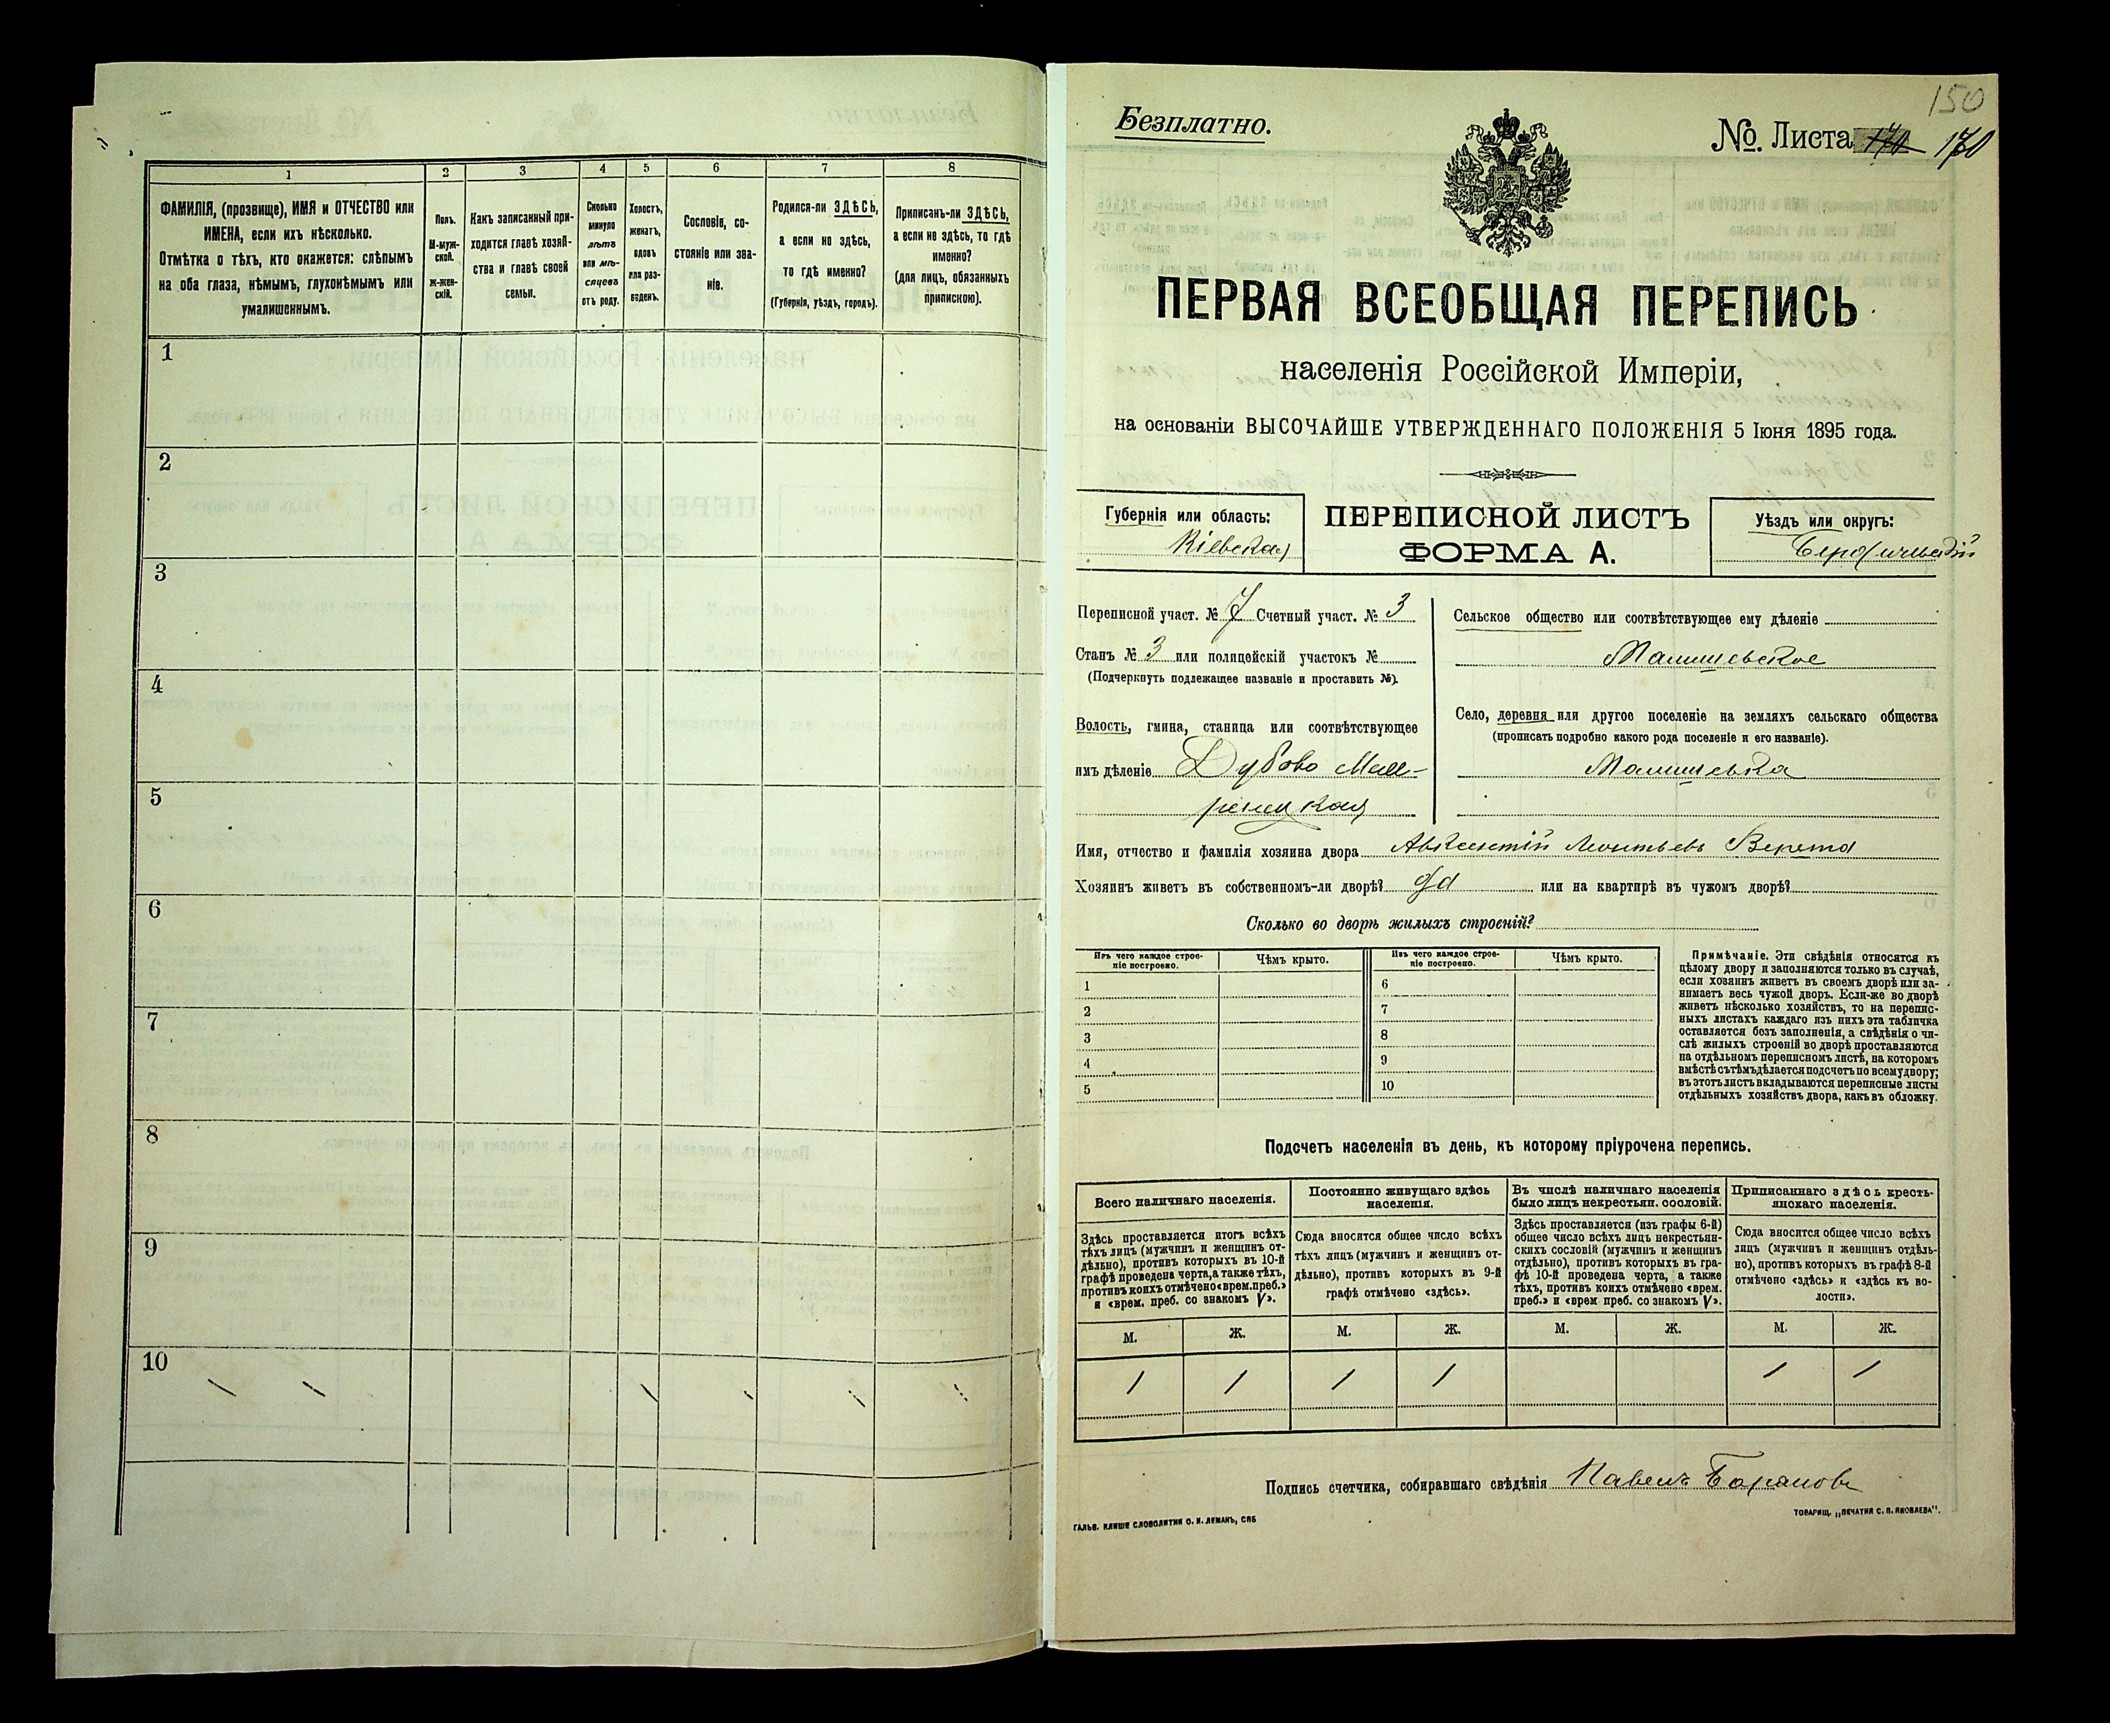 1 2 3 4 5 6 7 8
ФАМИЛІЯ, (прозвище), ИМЯ и ОТЧЕСТВО или
ИМЕНА, если ихъ нѣсколько.
Отмѣтка о тѣхъ, кто окажется: слѣпымъ
на оба глаза, нѣмымъ, глухонѣмымъ или
умалишеннымъ.
Полъ.
М-муж-
ской.
ж-жен-
скій.
Какъ записанный при-
ходится главѣ хозяй-
ства и главѣ своей
семьи.
Сколько
минуло
лѣтъ
или мѣ-
сяцевъ
отъ роду.
Холостъ,
женатъ,
вдовъ
или раз-
веденъ.
Сословіе, со-
стояніе или зва-
ніе.
Родился-ли ЗДѢСЬ,
а если не здѣсь,
то гдѣ именно?
(Губернія, уѣздъ, городъ).
Приписанъ-ли ЗДѢСЬ,
а если не здѣсь, то гдѣ
именно?
(для лицъ, обязанныхъ
припискою).
1
2
3
4
5
6
7
8
9
10
150
Безплатно.
№. Листа 170 170
ПЕРВАЯ ВСЕОБЩАЯ ПЕРЕПИСЬ
населенія Россійской Имперіи,
на основаніи ВЫСОЧАЙШЕ УТВЕРЖДЕННАГО ПОЛОЖЕНІЯ 5 Іюня 1895 года.
Губернія или область:
Кіевская
ПЕРЕПИСНОЙ ЛИСТЪ
ФОРМА А.
Уѣздъ или округъ:
Бердичевскій
Переписной участ. № 7 Счетный участ. № 3
Станъ № 3 или полицейскій участокъ №
(Подчеркнуть подлежащее названіе и проставить №).
Волость, гмина, станица или соотвѣтствующее
имъ дѣленіе Дубово Маш-
ринецкая
Сельское общество или соотвѣтствующее ему дѣленіе
Малишевское
Село, деревня или другое поселеніе на земляхъ сельскаго общества
(прописать подробно какого рода поселеніе и его названіе).
Малишевка
Имя, отчество и фамилія хозяина двора Авксентій Леонтьевъ Верета
Хозяинъ живетъ въ собственномъ-ли дворѣ? да или на квартирѣ въ чужомъ дворѣ?
Сколько во дворѣ жилыхъ строеній?
Изъ чего каждое строе-
ніе построено.
Чѣмъ крыто.
Изъ чего каждое строе-
ніе построено.
Чѣмъ крыто.
1 6
2 7
3 8
4 9
5 10
Примѣчаніе. Эти свѣдѣнія относятся къ
цѣлому двору и заполняются только въ случаѣ,
если хозяинъ живетъ въ своемъ дворѣ или за-
нимаетъ весь чужой дворъ. Если-же во дворѣ
живетъ нѣсколько хозяйствъ, то на перепис-
ныхъ листахъ каждаго изъ нихъ эта табличка
оставляется безъ заполненія, а свѣдѣнія о чи-
слѣ жилыхъ строеній во дворѣ проставляются
на отдѣльномъ переписномъ листѣ, на которомъ
вмѣстѣ съ тѣмъ дѣлается подсчетъ по всему двору;
въ этотъ листъ вкладываются переписные листы
отдѣльныхъ хозяйствъ двора, какъ въ обложку.
Подсчетъ населенія въ день, къ которому пріурочена перепись.
Всего наличнаго населенія.
Здѣсь проставляется итогъ всѣхъ
тѣхъ лицъ (мужчинъ и женщинъ от-
дѣльно), противъ которыхъ въ 10-й
графѣ проведена черта, а также тѣхъ,
противъ коихъ отмѣчено «врем. преб.»
и «врем. преб. со знакомъ V».
Постоянно живущаго здѣсь
населенія.
Сюда вносится общее число всѣхъ
тѣхъ лицъ (мужчинъ и женщинъ от-
дѣльно), противъ которыхъ въ 9-й
графѣ отмѣчено «здѣсь».
Въ числѣ наличнаго населенія
было лицъ некрестьян. сословій.
Здѣсь проставляется (изъ графы 6-й)
общее число всѣхъ лицъ некрестьян-
скихъ сословій (мужчинъ и женщинъ
отдѣльно), противъ которыхъ въ гра-
фѣ 10-й проведена черта, а также
тѣхъ, противъ коихъ отмѣчено «врем.
преб.» и «врем преб. со знакомъ V».
Приписаннаго здѣсь кресть-
янскаго населенія.
Сюда вносится общее число всѣхъ
лицъ (мужчинъ и женщинъ отдѣль-
но), противъ которыхъ въ графѣ 8-й
отмѣчено «здѣсь» и «здѣсь къ во-
лости».
М. Ж. М. Ж. М. Ж. М. Ж.
1 1 1 1 1 1
Подпись счетчика, собиравшаго свѣдѣнія Павелъ Барановъ
ГАЛЬВ. КЛИШЕ СЛОВОЛИТНИ О. И. ЛЕМАНЪ, СПБ
ТОВАРИЩ. „ПЕЧАТНЯ С. П. ЯКОВЛЕВА".